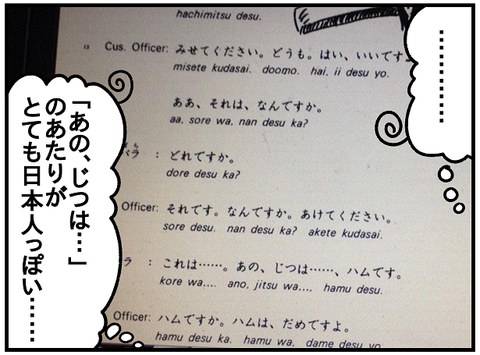 …………
hachimitsu desu.
Cus. Officer: みせてください。どうも。はい、いいです
misete kudasai. doomo. hai. ii desu yo.
ああ、それは、なんですか。
aa, sore wa, nan desu ka?
バラ : どれですか。
dore desu ka?
Officer: それです。なんですか。あけてください。
sore desu. nan desu ka? akete kudasai.
ラ : これは……。あの、じつは……、ハムです。
kore wa.... ano, jitsu wa.... hamu desu.
Officer: ハムですか。ハムは、だめですよ。
hamu desu ka. hamu wa, dame desu yo
「あの、じつは…」
のあたりが
とても日本人っぽい……